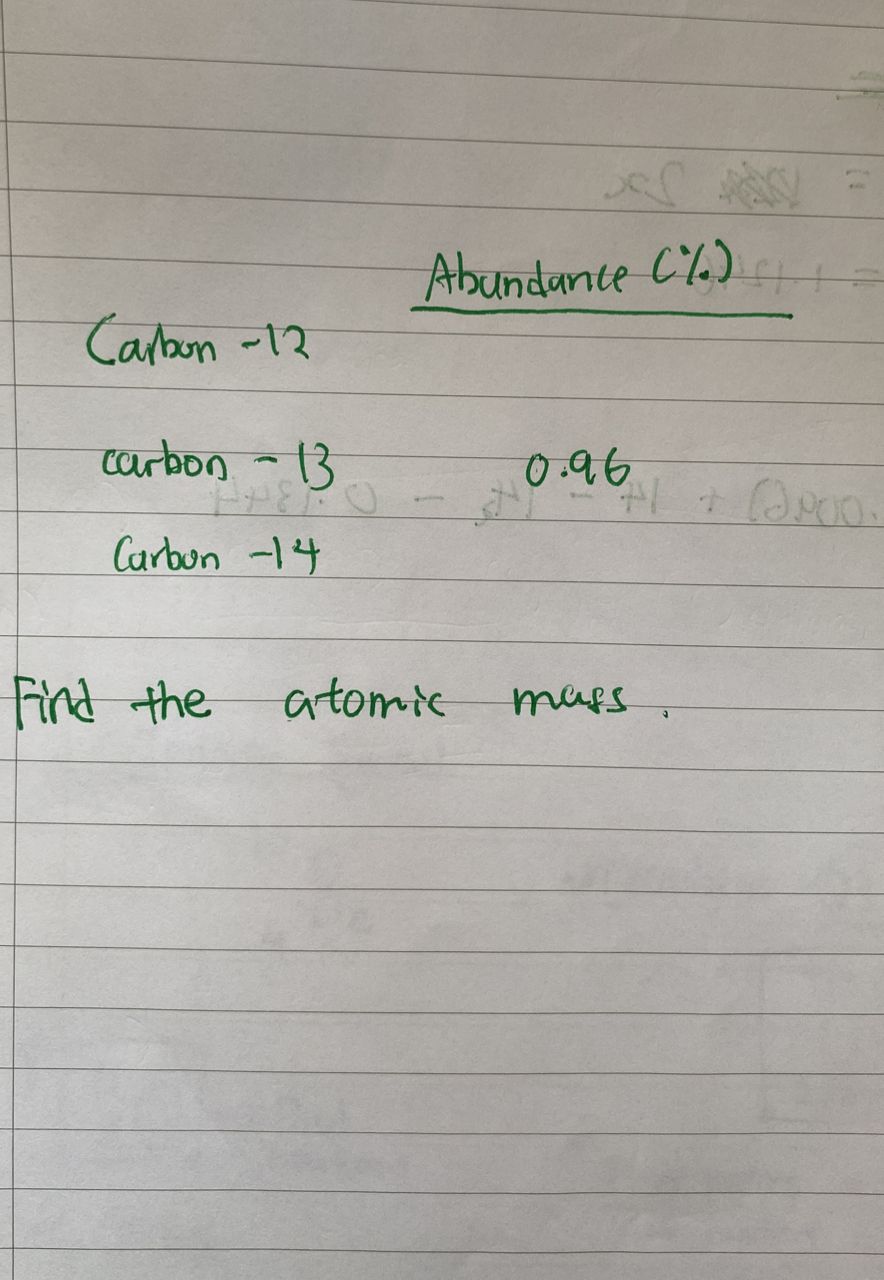 Abundance (%)
Carbon -12
carbon - 13 0.96
Carbon -14
Find the atomic mass.